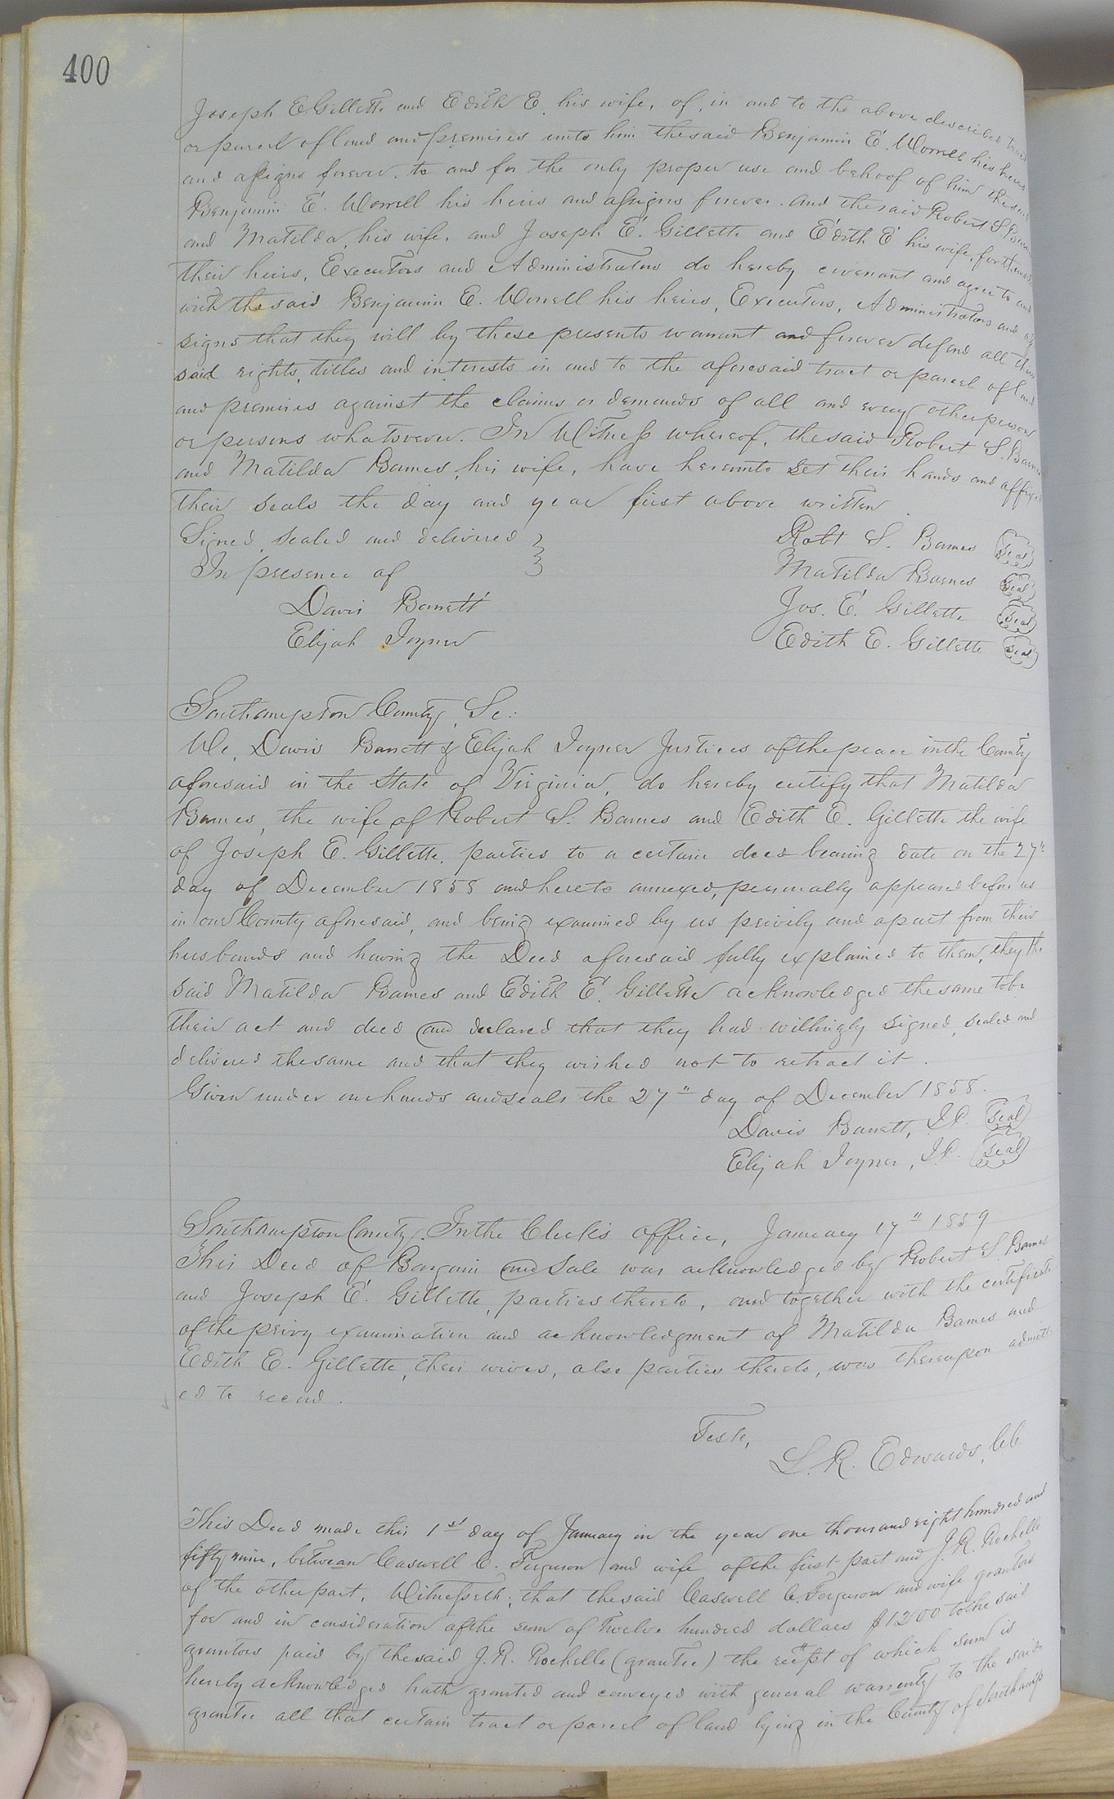 400
Joseph E. Gillette and Edith E. his wife, of, in and to the above described
or parcel of land and premises unto him the said Benjamin E. Worrell his heirs
and assigns forever, to and for the only proper use and behoof of him the said
Benjamin E. Worrell his heirs and assigns forever. And the said Robert S. Barnes
and Matilda, his wife, and Joseph E. Gillette and Edith E. his wife, for them
their heirs, Executors and Administrators do hereby covenant and agree to and
with the said Benjamin E. Worrell his heirs, Executors, Administrators and as
signs that they will by these presents warrant and forever defend all their
said rights, titles and interests in and to the aforesaid tract or parcel of land
and premises against the claims or demands of all and every other person
or persons whatsoever. In Witness whereof, the said Robert S. Barnes
and Matilda Barnes, his wife, have hereunto set their hands and affixed
their seals the day and year first above written
Signed, sealed and delivered } Robt S. Barnes (Seal)
In presence of Matilda Barnes (Seal)
Davis Barrett Jos. E. Gillette (Seal)
Elijah Joyner Edith E. Gillette (Seal)
Southampton County, Sc:
We, Davis Barrett & Elijah Joyner Justices of the peace in the County
aforesaid in the State of Virginia, do hereby certify that Matilda
Barnes, the wife of Robert S. Barnes and Edith E. Gillette the wife
of Joseph E. Gillette, parties to a certain deed bearing date on the 27th
day of December 1858 and hereto annexed, personally appeared before us
in our County aforesaid, and being examined by us privily and apart from their
husbands and having the Deed aforesaid fully explained to them, they the
said Matilda Barnes and Edith E. Gillette acknowledged the same to be
their act and deed and declared that they had willingly signed, sealed and
delivered the same and that they wished not to retract it.
Given under our hands and seals the 27th day of December 1858.
Davis Barrett, J.P. (Seal)
Elijah Joyner, J.P. (Seal)
Southampton County. In the Clerk's office, January 17th 1859
This Deed of Bargain and Sale was acknowledged by Robert S. Barnes
and Joseph E. Gillette, parties thereto, and together with the certificate
of the privy examination and acknowledgment of Matilda Barnes and
Edith E. Gillette, their wives, also parties thereto, was thereupon admitt
ed to record.
Teste,
L. R. Edwards, CC.
This Deed made this 1st day of January in the year one thousand eight hundred and
fifty nine, between Caswell C. Ferguson and wife of the first part and J. R. Rochelle
of the other part, Witnesseth; that the said Caswell C. Ferguson and wife grantors
for and in consideration of the sum of Twelve hundred dollars $1200 to the said
grantors paid by the said J. R. Rochelle (grantee) the receipt of which sum is
hereby acknowledged hath granted and conveyed with general warrenty to the said
grantee all that certain tract or parcel of land lying in the County of Southamp